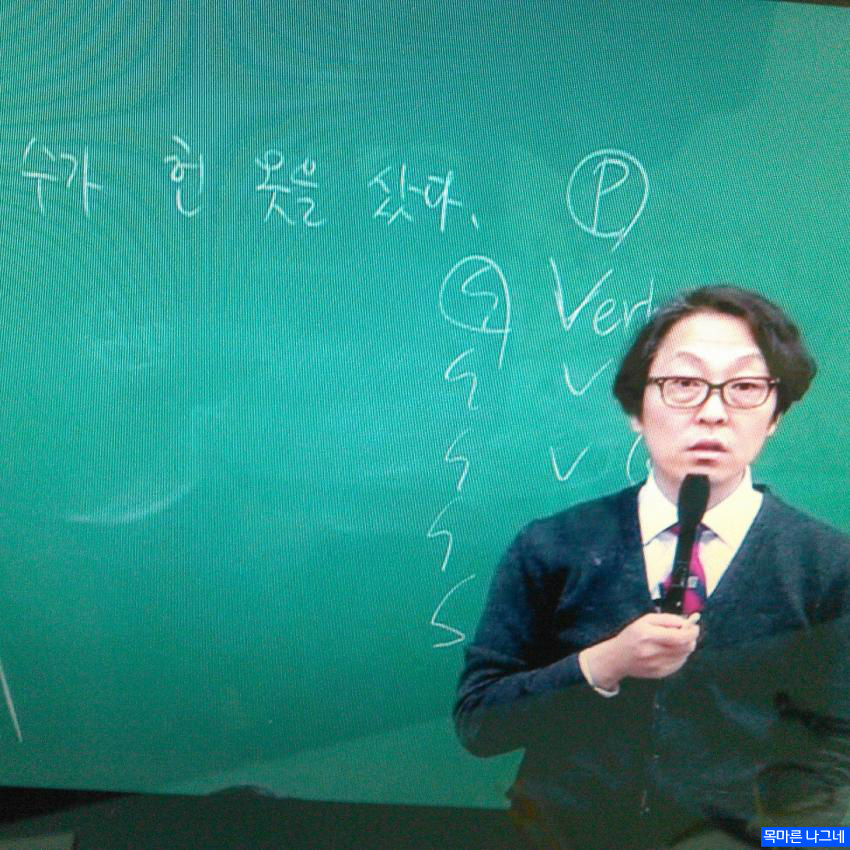 수가 헌 옷을 샀다. Ⓟ
Ⓢ Ver
S V
S V
S
S
목마른 나그네